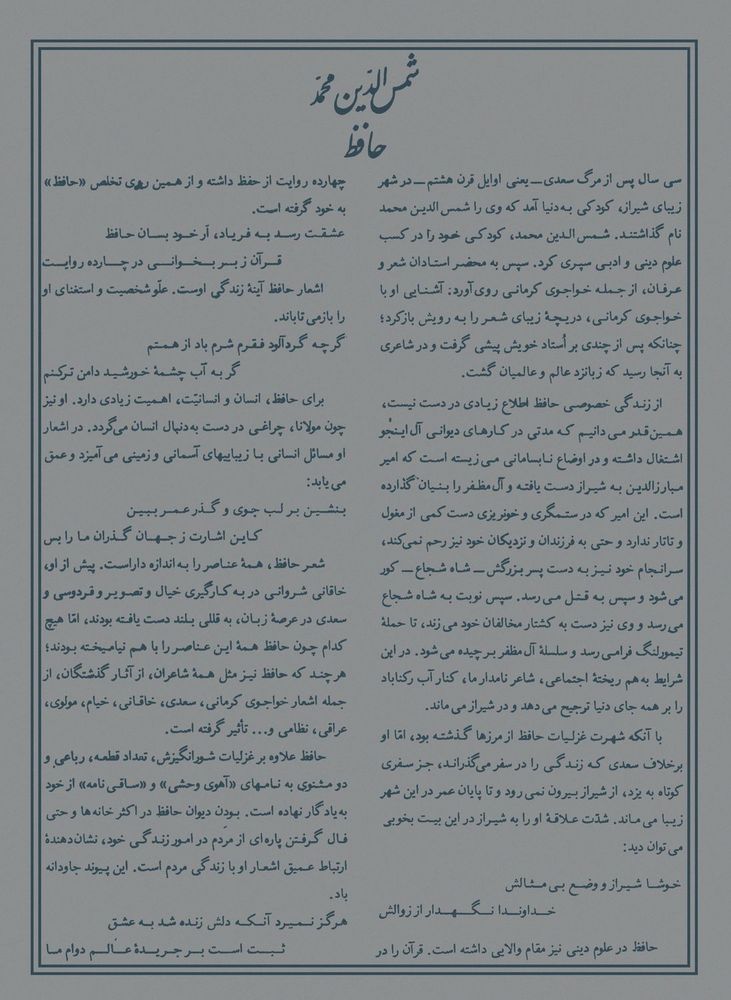 شمس‌الدّین محمّد
حافظ
سی سال پس از مرگ سعدی ــ یعنی اوایل قرن هشتم ــ در شهر
زیبای شیراز، کودکی به‌دنیا آمد که وی را شمس‌الدین محمد
نام گذاشتند. شمس‌الدین محمد، کودکی خود را در کسب
علوم دینی و ادبی سپری کرد. سپس به محضر استادان شعر و
عرفان، از جمله خواجوی کرمانی روی‌آورد: آشنایی او با
خواجوی کرمانی، دریچهٔ زیبای شعر را به رویش بازکرد؛
چنانکه پس از چندی بر اُستاد خویش پیشی گرفت و در شاعری
به آنجا رسید که زبانزد عالم و عالمیان گشت.
از زندگی خصوصی حافظ اطلاع زیادی در دست نیست،
همین‌قدر می‌دانیم که مدتی در کارهای دیوانی آل‌اینجو
اشتغال داشته و در اوضاع نابسامانی می‌زیسته است که امیر
مبارزالدین به شیراز دست یافته و آل‌مظفر را بنیان گذارده
است. این امیر که در ستمگری و خونریزی دست کمی از مغول
و تاتار ندارد و حتی به فرزندان و نزدیکان خود نیز رحم نمی‌کند،
سرانجام خود نیز به دست پسر بزرگش ــ شاه شجاع ــ کور
می‌شود و سپس به قتل می‌رسد. سپس نوبت به شاه شجاع
می‌رسد و وی نیز دست به کشتار مخالفان خود می‌زند، تا حملهٔ
تیمورلنگ فرامی‌رسد و سلسلهٔ آل‌مظفر برچیده می‌شود. در این
شرایط به‌هم ریختهٔ اجتماعی، شاعر نامدار ما، کنار آب رکناباد
را بر همه جای دنیا ترجیح می‌دهد و در شیراز می‌ماند.
با آنکه شهرت غزلیات حافظ از مرزها گذشته بود، امّا او
برخلاف سعدی که زندگی را در سفر می‌گذراند، جز سفری
کوتاه به یزد، از شیراز بیرون نمی‌رود و تا پایان عمر در این شهر
زیبا می‌ماند. شدّت علاقهٔ او را به شیراز در این بیت بخوبی
می‌توان دید:
خوشا شیراز و وضع بی‌مثالش
خداوندا نگهدار از زوالش
حافظ در علوم دینی نیز مقام والایی داشته است. قرآن را در
چهارده روایت از حفظ داشته و از همین روی تخلص «حافظ»
به خود گرفته است.
عشقت رسد به فریاد، اَر خود بسان حافظ
قرآن ز بر بخوانی در چارده روایت
اشعار حافظ آینهٔ زندگی اوست. علّو شخصیت و استغنای او
را بازمی‌تاباند.
گرچه گردآلود فقرم شرم باد از همتم
گر به آب چشمهٔ خورشید دامن ترکنم
برای حافظ، انسان و انسانیّت، اهمیت زیادی دارد. او نیز
چون مولانا، چراغی در دست به‌دنبال انسان می‌گردد. در اشعار
او مسائل انسانی با زیباییهای آسمانی و زمینی می‌آمیزد و عمق
می‌یابد:
بنشین بر لب جوی و گذر عمر ببین
کاین اشارت ز جهان گذران ما را بس
شعر حافظ، همهٔ عناصر را به‌اندازه داراست. پیش از او،
خاقانی شروانی در به‌کارگیری خیال و تصویر و فردوسی و
سعدی در عرصهٔ زبان، به قللی بلند دست یافته بودند، امّا هیچ
کدام چون حافظ همهٔ این عناصر را با هم نیامیخته بودند؛
هرچند که حافظ نیز مثل همهٔ شاعران، از آثار گذشتگان، از
جمله اشعار خواجوی کرمانی، سعدی، خاقانی، خیام، مولوی،
عراقی، نظامی و... تأثیر گرفته است.
حافظ علاوه بر غزلیات شورانگیزش، تعداد قطعه، رباعی و
دو مثنوی به نامهای «آهوی وحشی» و «ساقی‌نامه» از خود
به‌یادگار نهاده است. بودن دیوان حافظ در اکثر خانه‌ها و حتی
فال گرفتن پاره‌ای از مردم در امور زندگی خود، نشان‌دهندهٔ
ارتباط عمیق اشعار او با زندگی مردم است. این پیوند جاودانه
باد.
هرگز نمیرد آنکه دلش زنده شد به عشق
ثبت است بر جریدهٔ عالم دوام ما